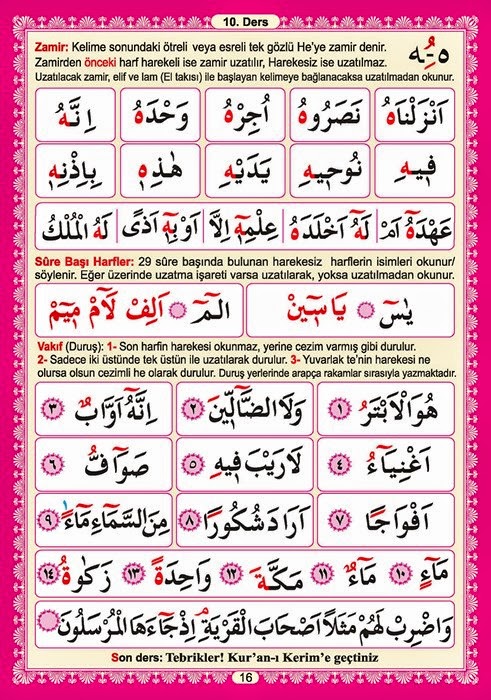 10. Ders
Zamir: Kelime sonundaki ötreli veya esreli tek gözlü He'ye zamir denir.
Zamirden önceki harf harekeli ise zamir uzatılır, Harekesiz ise uzatılmaz.
Uzatılacak zamir, elif ve lam (El takısı) ile başlayan kelimeye bağlanacaksa uzatılmadan okunur.
ه ـهُ
اَنْزَلْنَاهُ نَصَرُوهُ اُجِرْهُ وَحْدَهُ اِنَّهُ
فٖيهِ نُوحٖيهِ يَدَيْهِ هٰذِهٖ بِاِذْنِهٖ
عَهْدَهُٓ اَمْ لَهُٓ اَخْلَدَهُ عِلْمِهٖٓ اِلَّا اَوْبِهٖٓ اَذًى لَهُ الْمُلْكُ
Sûre Başı Harfler: 29 sûre başında bulunan harekesiz harflerin isimleri okunur/
söylenir. Eğer üzerinde uzatma işareti varsa uzatılarak, yoksa uzatılmadan okunur.
يٰسٓ يَاسٓيٖنْ الٓمٓ اَلِفْ لَٓامْ مٖٓيمْ
Vakıf (Duruş): 1- Son harfin harekesi okunmaz, yerine cezim varmış gibi durulur.
2- Sadece iki üstünde tek üstün ile uzatılarak durulur. 3- Yuvarlak te'nin harekesi ne
olursa olsun cezimli he olarak durulur. Duruş yerlerinde arapça rakamlar sırasıyla yazmaktadır.
هُوَ الْاَبْتَرُ ١ وَلَا الضَّٓالّٖينَ ٢ اِنَّهُٓ اَوَّابٌ ٣
اَغْنِيَٓاءُ ٤ لَا رَيْبَ فٖيهِ ٥ صَوَٓافَّ ٦
اَفْوَاجًا ٧ اَرَادَ شُكُورًا ٨ مِنَ السَّمَٓاءِ مَٓاءً ٩
مَٓاءٍ ١٠ مَٓاءٌ ١١ مَكَّةَ ١٢ وَاحِدَةً ١٣ زَكٰوةً ١٤
وَاضْرِبْ لَهُمْ مَثَلًا اَصْحَابَ الْقَرْيَةِۘ اِذْجَٓاءَهَا الْمُرْسَلُونَ
Son ders: Tebrikler! Kur'an-ı Kerim'e geçtiniz
16